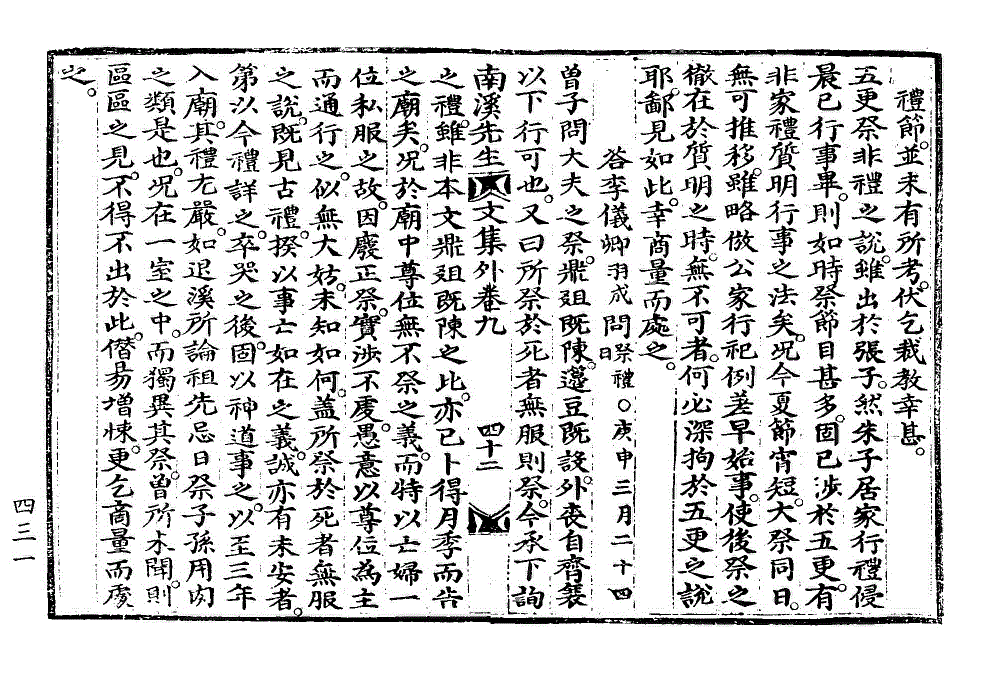 禮節。並未有所考。伏乞裁教幸甚。
五更祭非禮之說。雖出於張子。然朱子居家行禮侵
晨已行事畢。則如時祭節目甚多。固已涉於五更。有
非家禮質明行事之法矣。况今夏節宵短。大祭同日。
無可推移。雖略倣公家行祀例。差早始事。使後祭之
徹在於質明之時。無不可者。何必深拘於五更之說
耶。鄙見如此。幸商量而處之。
答李儀卿羽成問祭禮○庚申三月二十四日
曾子問大夫之祭。鼎俎旣陳。籩豆旣設。外喪自齊衰
以下行可也。又曰所祭於死者無服則祭。今承下詢
南溪先生文集外卷九 四十二
之禮。雖非本文鼎俎旣陳之比。亦已卜得月季而告
之廟矣。况於廟中尊位無不祭之義。而特以亡婦一
位私服之故。因廢正祭。實涉不虔。愚意以尊位爲主
而通行之。似無大姑。未知如何。蓋所祭於死者無服
之說。旣見古禮。揆以事亡如在之義。誠亦有未安者。
第以今禮詳之。卒哭之後。固以神道事之。以至三年
入廟。其禮尤嚴。如退溪所論祖先忌日祭子孫用肉
之類是也。况在一室之中。而獨異其祭。曾所未聞。則
區區之見。不得不出於此。僭易增悚。更乞商量而處
之。
四三一